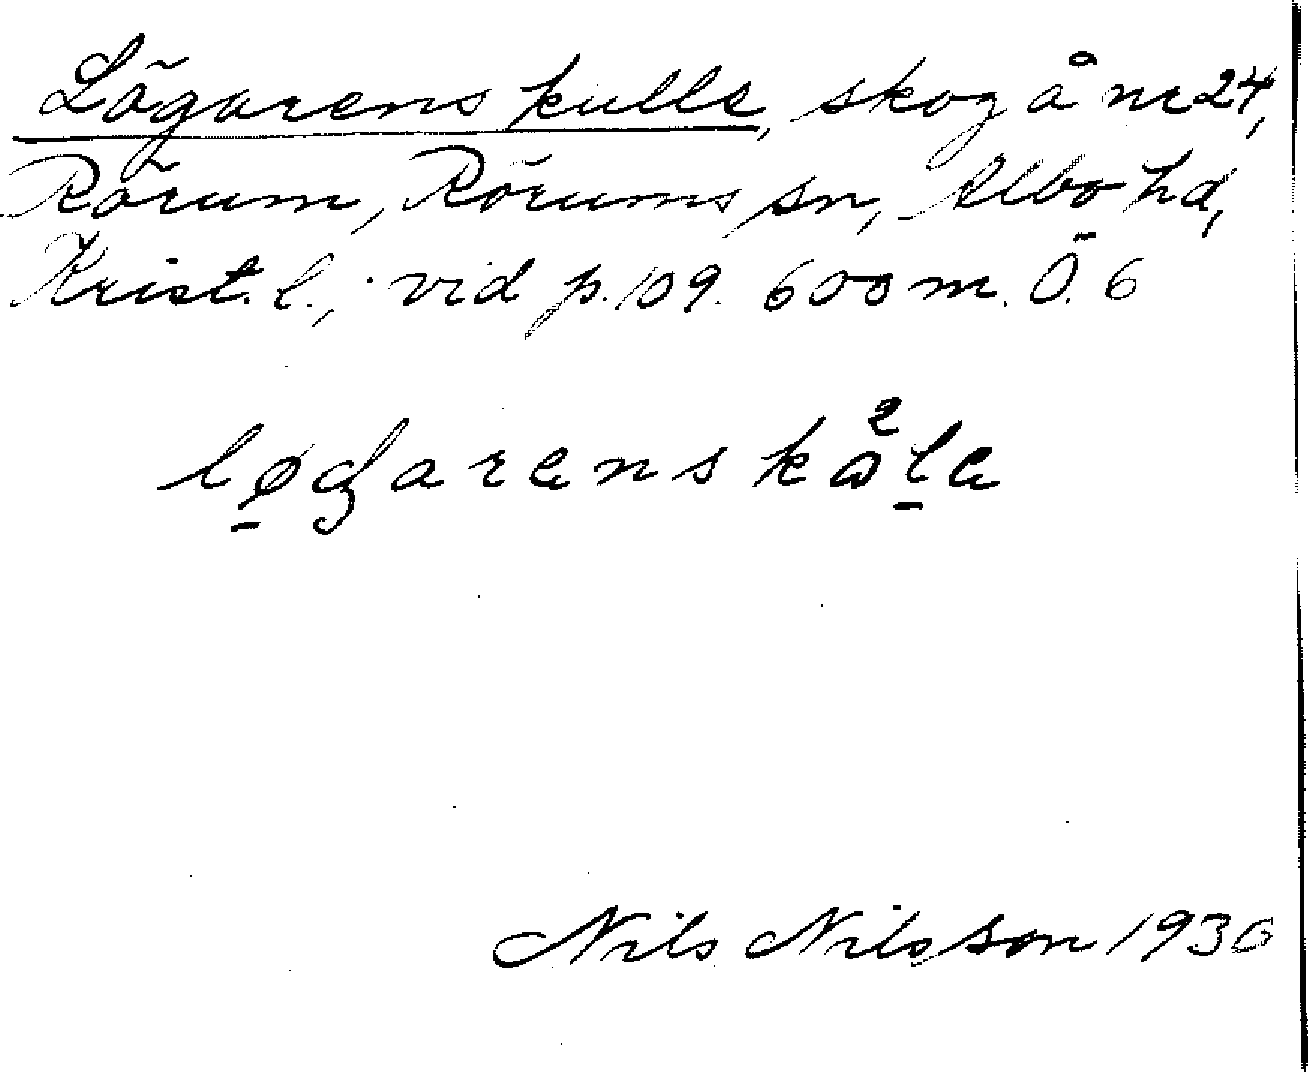 Lögarens kulle, skog å nr 24,
Rörum, Rörums sn, Albo hd,
Krist. l., vid p. 109. 600 m. Ö. 6
løgarenskåle
Nils Nilsson 1930